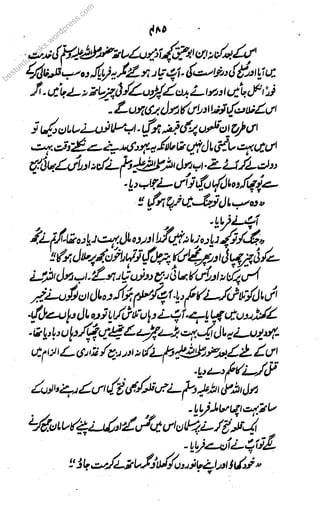 ۳۸۵
اس کے بعد کنانہ ابن ابو حقیق کچھ آدمیوں کے ساتھ حضور صلی اللہ علیہ وسلم کی خدمت
میں آیا اور صلح کی درخواست کی۔ آپ تیار ہو گئے مگر یہ فرمایا کہ وہ سب قلعہ خالی کر کے
فوراً نکل جائیں اور سوائے بدن کے کپڑوں کے کوئی چیز ساتھ نہ لے جائیں۔ اگر
اس کے خلاف کیا تو خدا اور اس کا رسول بری ہوں گے۔
اس طرح ان قلعوں پر بھی قبضہ ہو گیا۔ اب مسلمانوں نے سامان دیکھا تو
اس میں بہت سا قیمتی مال نہیں تھا حالانکہ یہودی مدینے سے نکلتے وقت بہت
دولت لے کر آئے تھے۔ اب رسول اللہ صلی اللہ علیہ وسلم نے کنانہ اور اس کے بھائی ربیع
سے پوچھا کہ وہ مال کہاں گیا تو اُس نے جواب دیا۔
"وہ سب مال تو جنگ میں خرچ ہو گیا!"
آپ نے فرمایا۔
"جنگ کو تو کچھ زیادہ زمانہ نہیں گذرا اور وہ مال بہت زیادہ تھا۔ اگر تم نے مجھ
سے کوئی چیز چھپائی اور پھر مجھے اس کا پتہ چل گیا تو تمہارا خون مجھ پر حلال ہو گا!"
اس پر کنانہ اور اس کا بھائی ربیع دونوں تیار ہو گئے۔ اب رسول اللہ نے
اُس مال کو تلاش کرنے کا حکم دیا۔ آپ کو معلوم ہوا کہ وہ مال ان لوگوں نے خیبر
کے کھنڈروں میں چھپایا ہے۔ آپ نے وہاں تلاش کرایا تو وہ مال وہاں سے مل گیا۔
یہودیوں نے یہ مال ایک بہت بڑے چمڑے کے تھیلے میں چھپا کر وہاں دبا دیا تھا۔
اس کے ملنے کے بعد حضور صلی اللہ علیہ وسلم نے کنانہ اور ربیع کو غداری کے الزام میں
قتل کرنے کا حکم دے دیا۔
رسول اللہ صلی اللہ علیہ وسلم نے جس قلعہ کو بھی فتح کیا اس کے رہنے والوں کے
ساتھ بہت اچھا معاملہ فرمایا۔
ایک قلعہ فتح کر کے مسلمان اس میں گھس گئے اور کھانے پینے کا سامان جمع کرنے
لگے تو آپ نے اُن سے فرمایا۔
"خود کھاؤ اور اپنے جانوروں کو کھلاؤ مگر ساتھ لے کر مت جاؤ!"
besturdubooks.wordpress.com